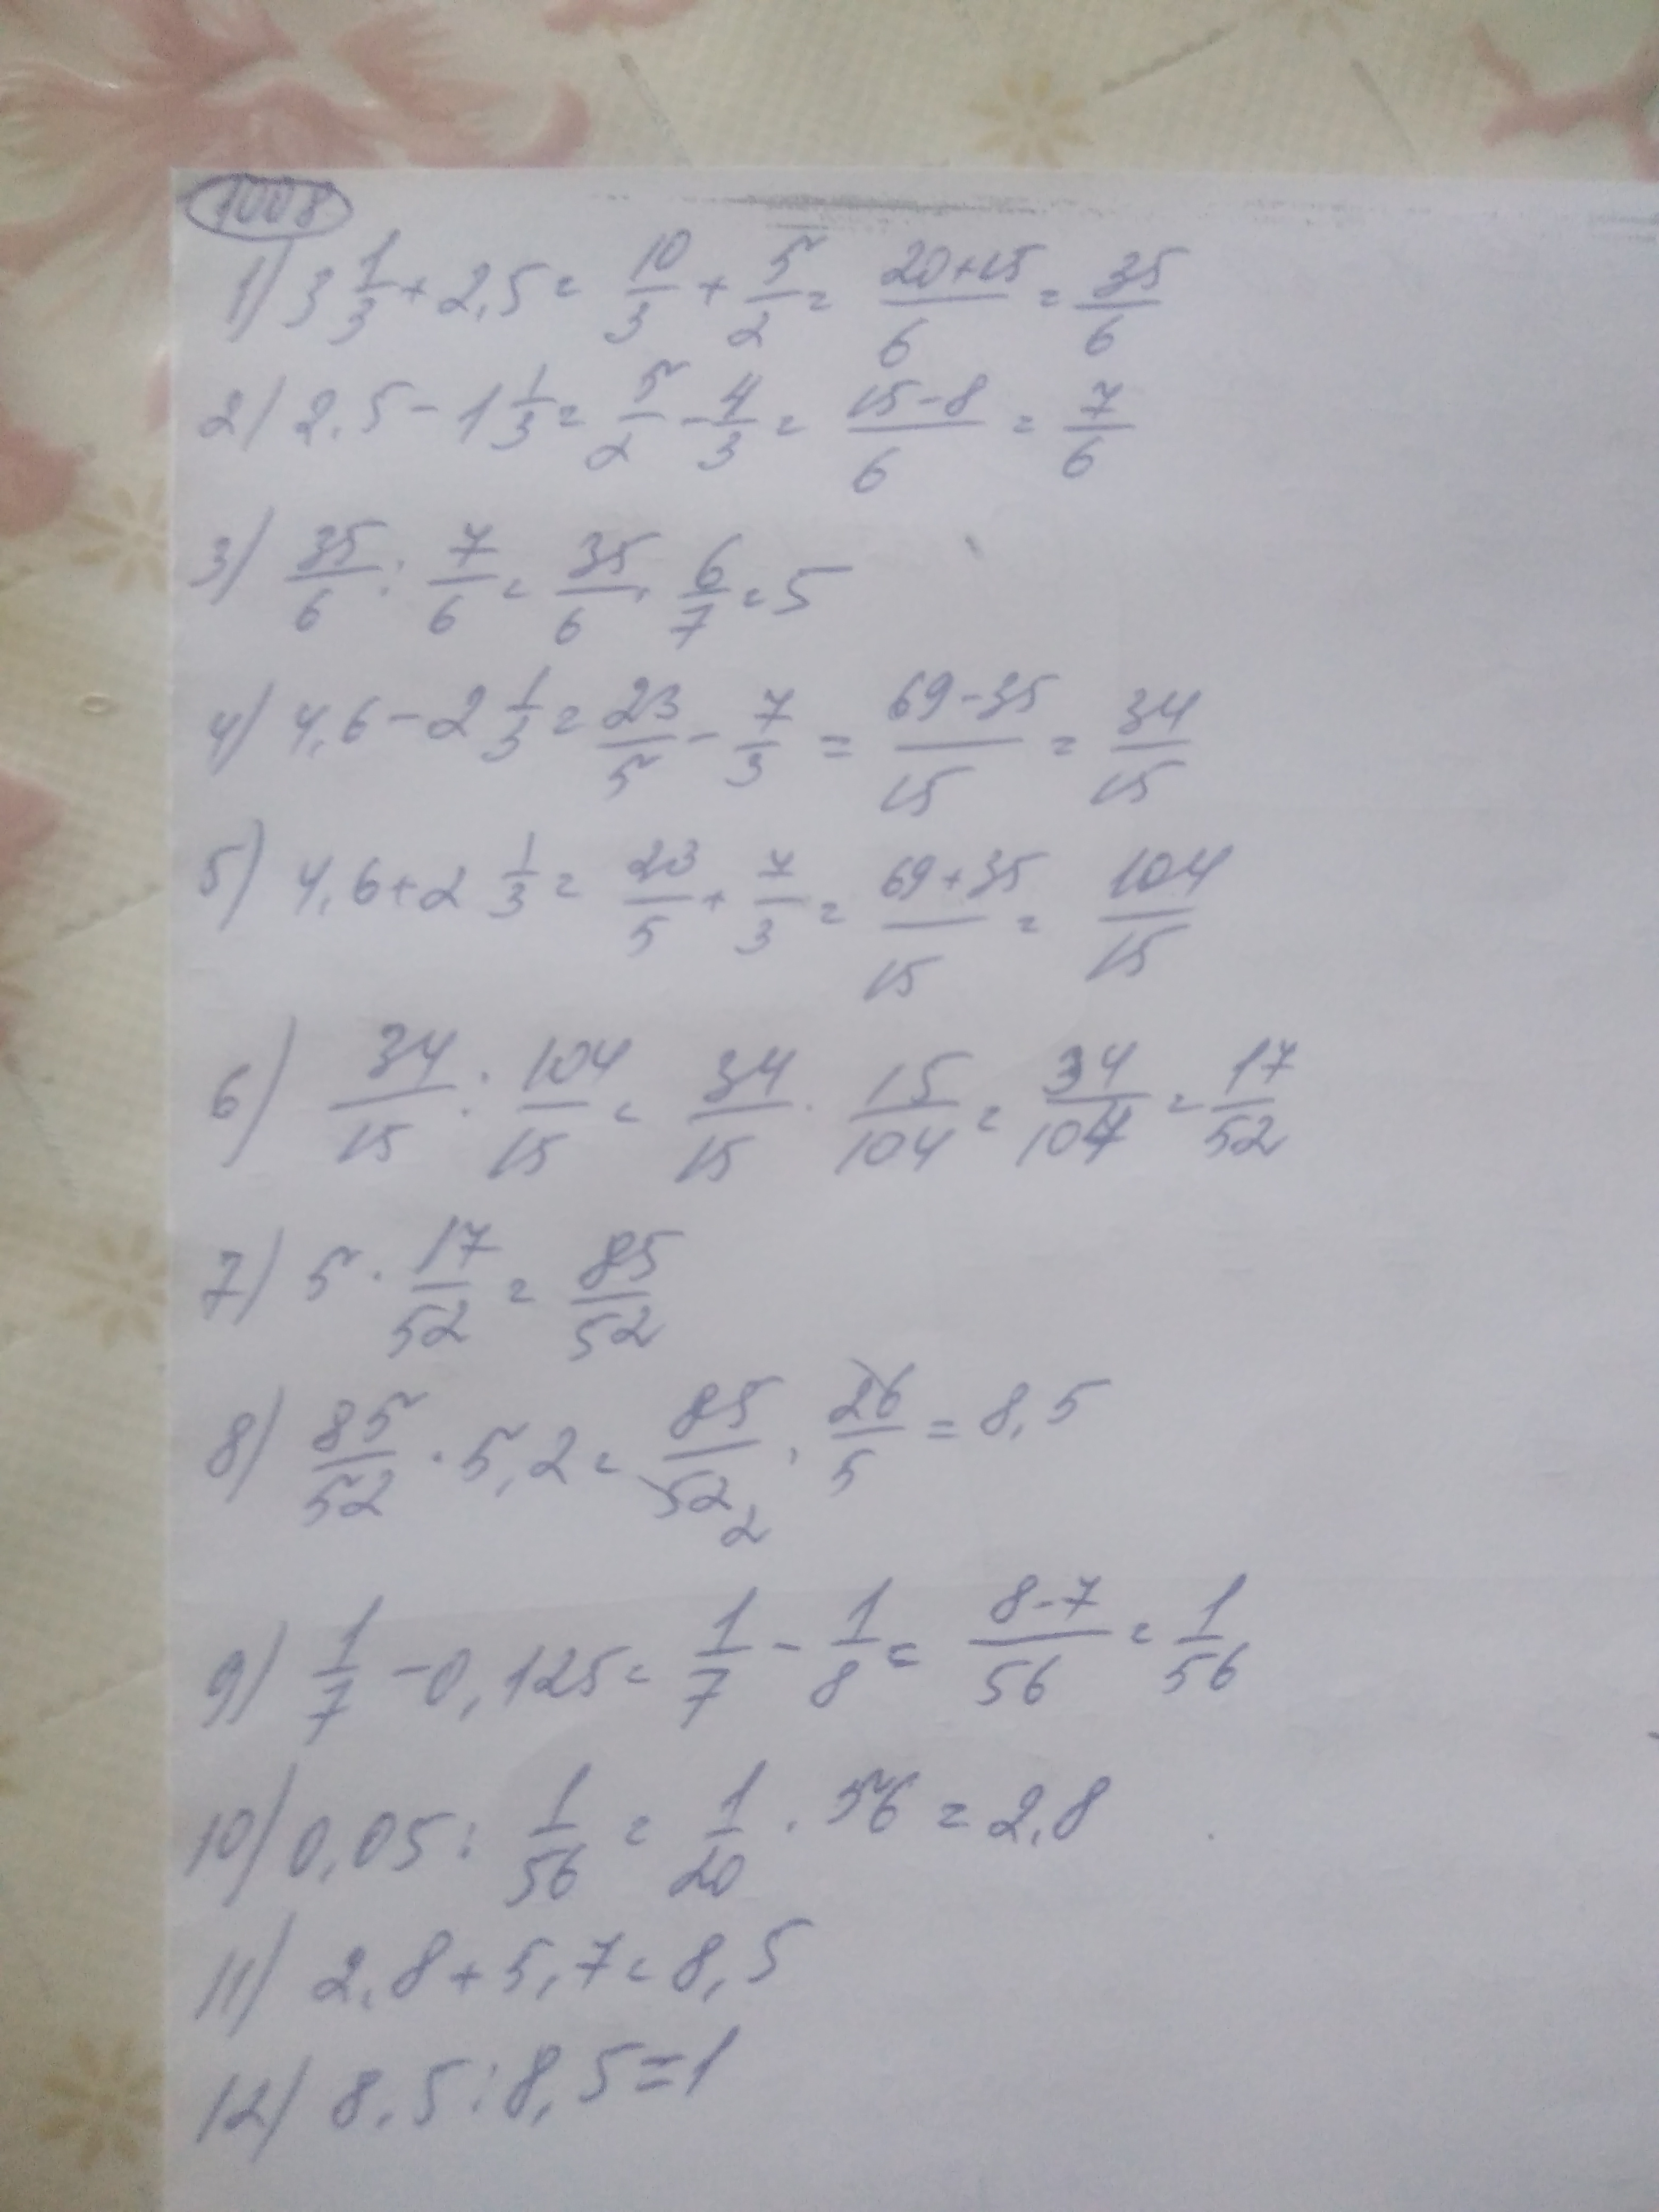 1008
1) 3 1/3 + 2,5 = 10/3 + 5/2 = (20+15)/6 = 35/6
2) 2,5 - 1 1/3 = 5/2 - 4/3 = (15-8)/6 = 7/6
3) 35/6 : 7/6 = 35/6 · 6/7 = 5
4) 4,6 - 2 1/3 = 23/5 - 7/3 = (69-35)/15 = 34/15
5) 4,6 + 2 1/3 = 23/5 + 7/3 = (69+35)/15 = 104/15
6) 34/15 : 104/15 = 34/15 · 15/104 = 34/104 = 17/52
7) 5 · 17/52 = 85/52
8) 85/52 · 5,2 = 85/52 2 · 26/5 = 8,5
9) 1/7 - 0,125 = 1/7 - 1/8 = (8-7)/56 = 1/56
10) 0,05 : 1/56 = 1/20 · 56 = 2,8
11) 2,8 + 5,7 = 8,5
12) 8,5 : 8,5 = 1